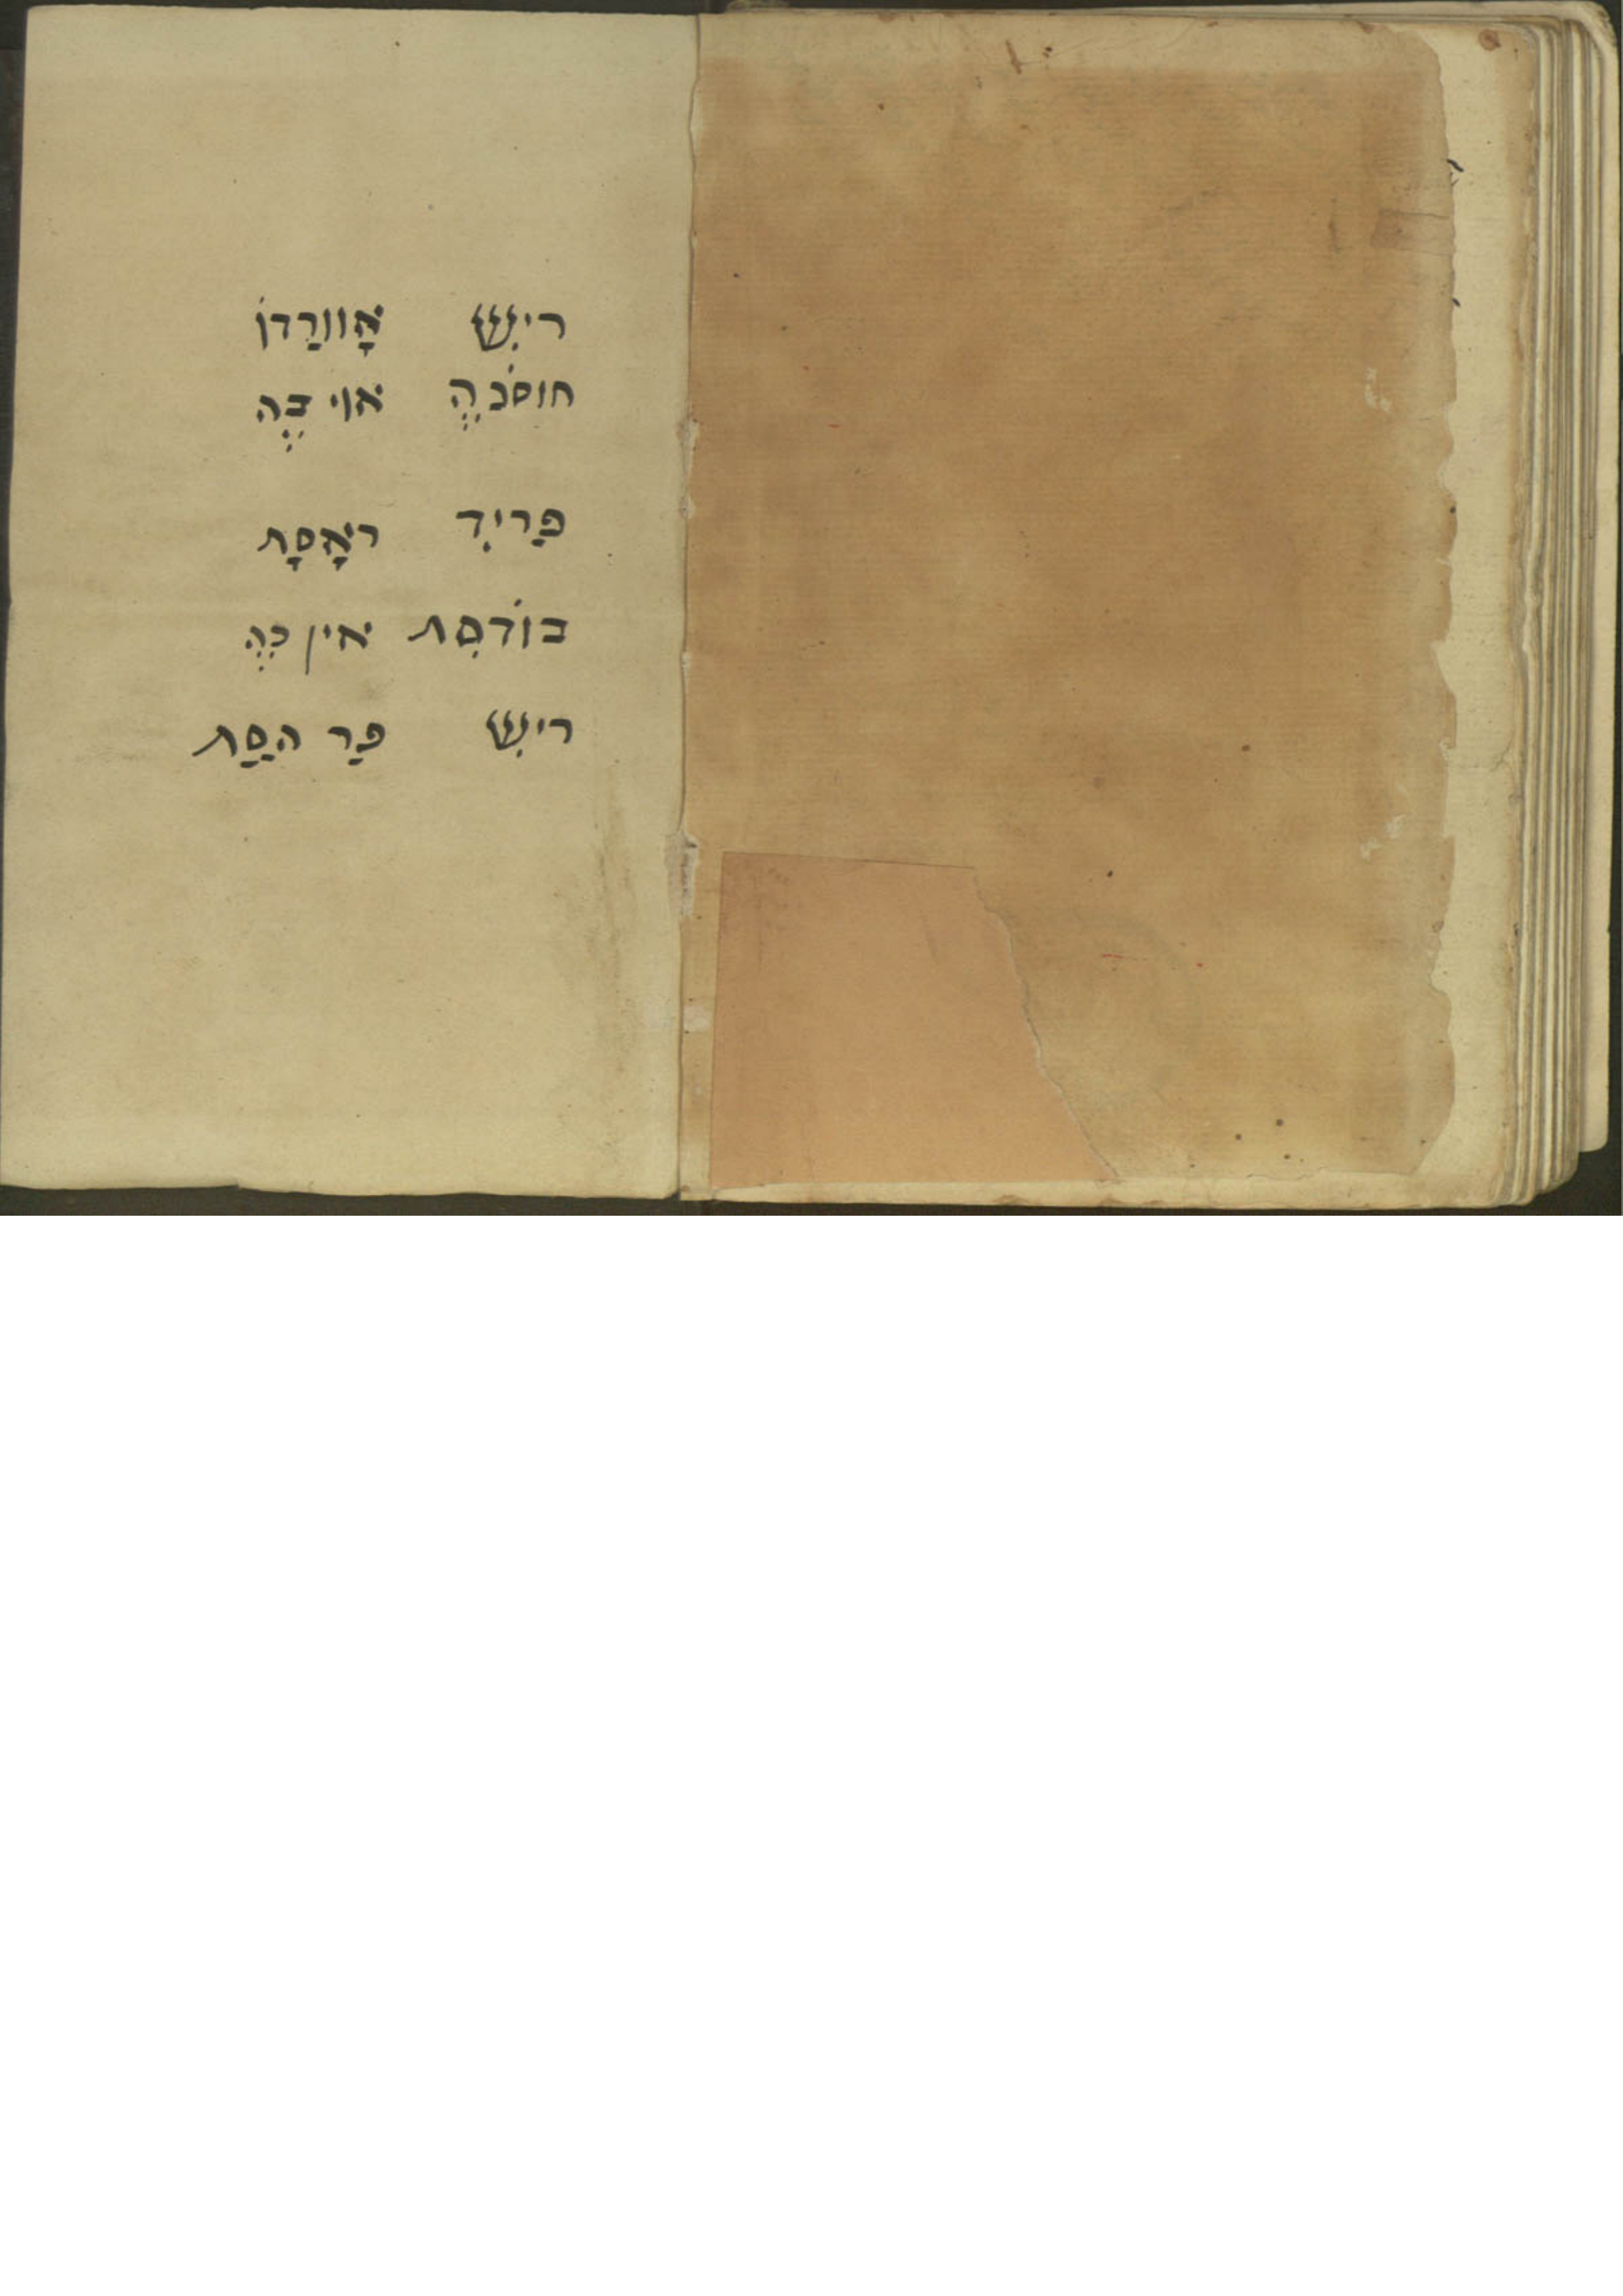 רִיש אָווּרַדוֹ
חוסכֹהֱ אוי בֶה
פַרִיד ראָסָת
בוֹדסִת אין כֶה
רִיש פַר הַסַת